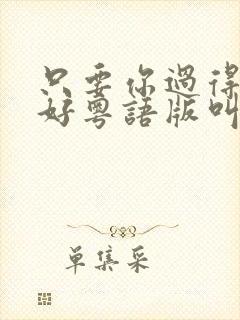 只要你過得
好粵語版叫
單集采